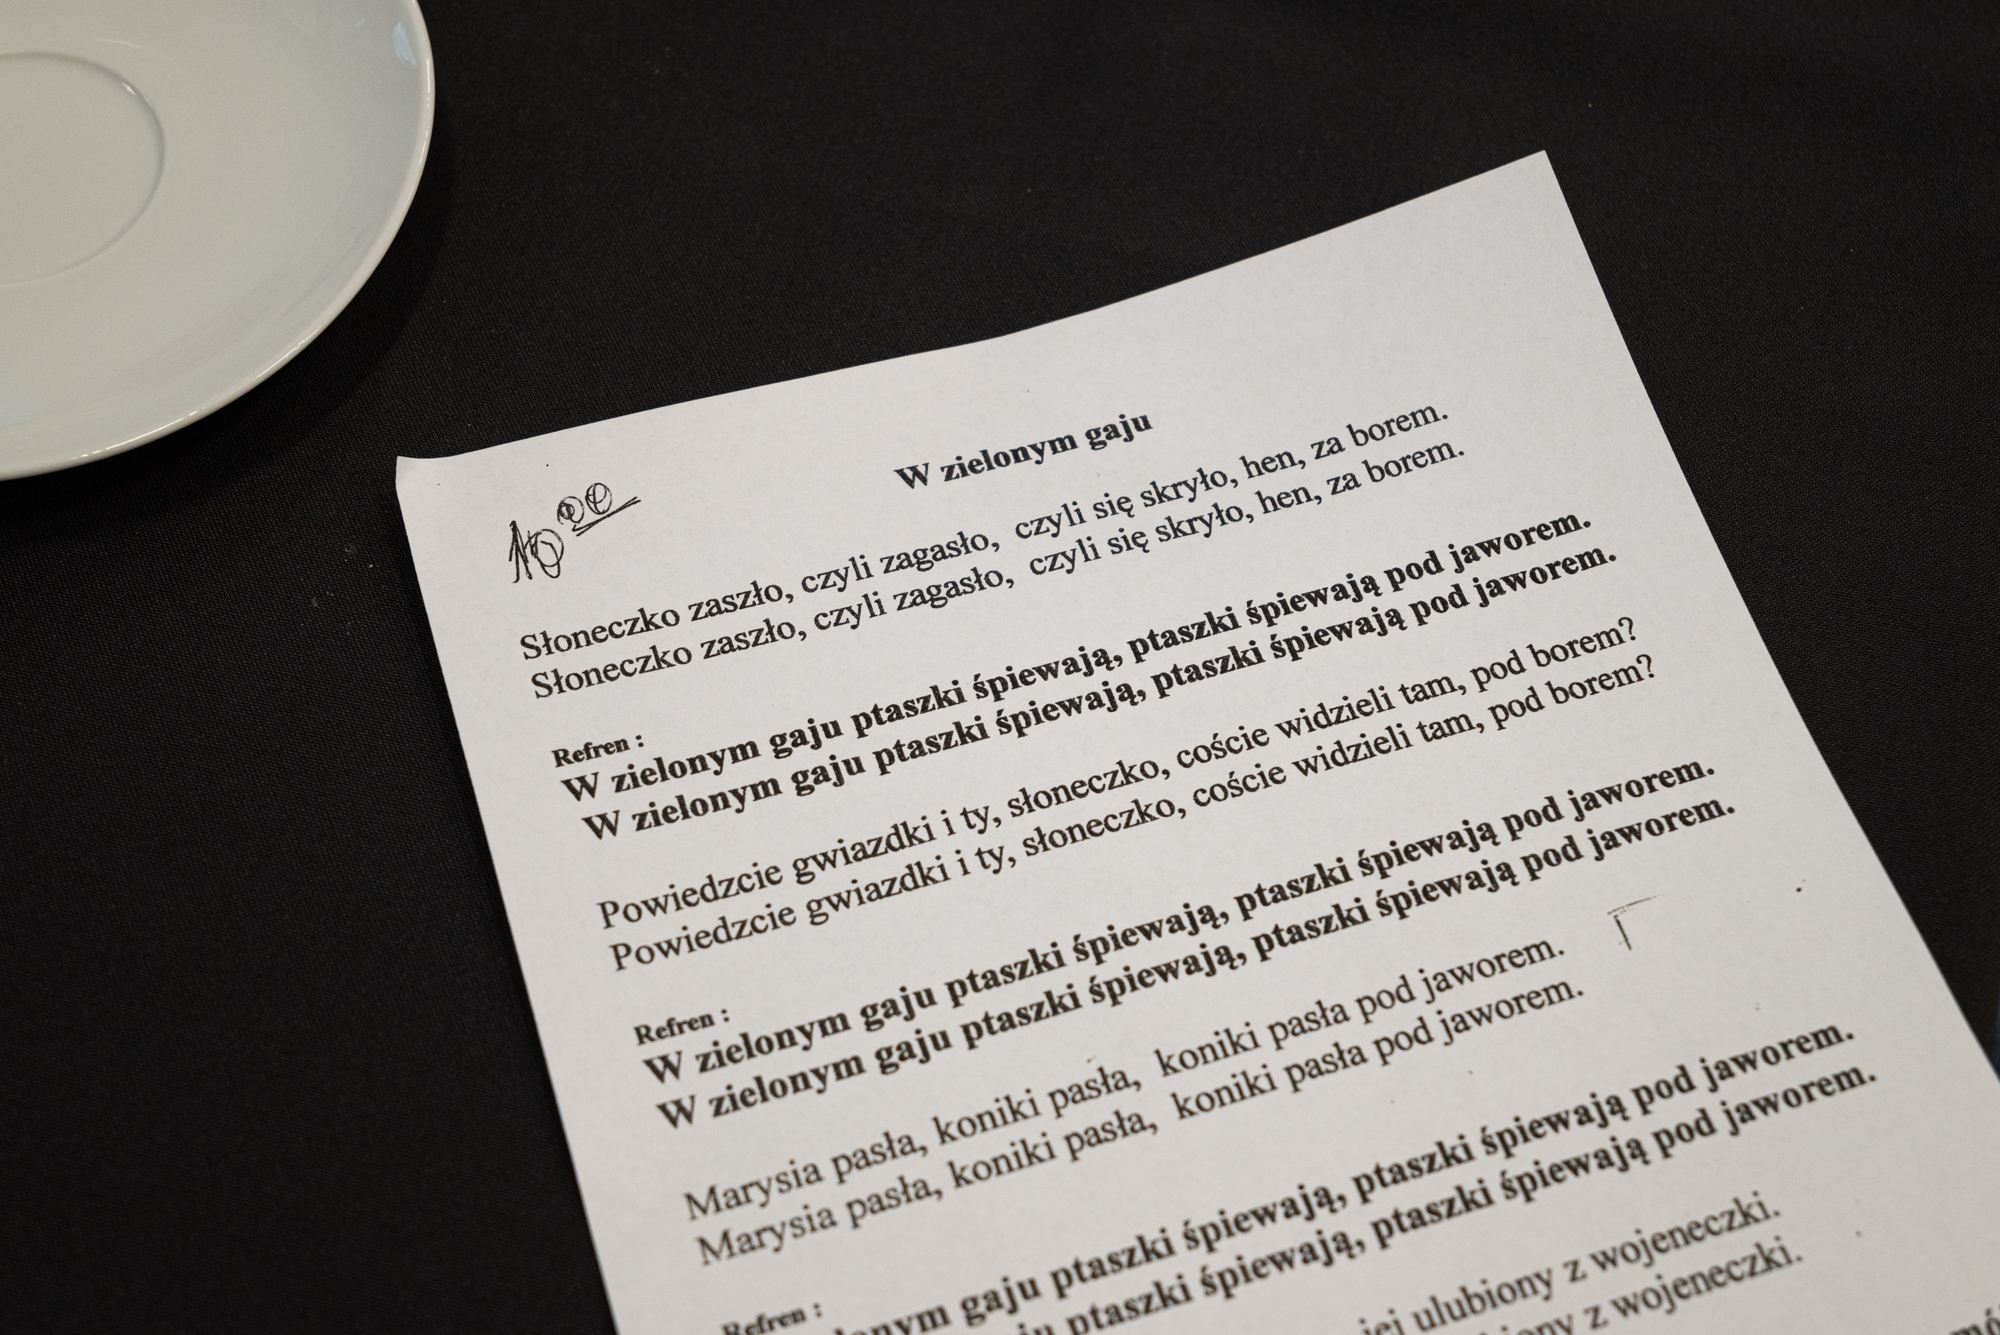 W zielonym gaju
Słoneczko zaszło, czyli zagasło, czyli się skryło, hen, za borem.
Słoneczko zaszło, czyli zagasło, czyli się skryło, hen, za borem.
Refren :
W zielonym gaju ptaszki śpiewają, ptaszki śpiewają pod jaworem.
W zielonym gaju ptaszki śpiewają, ptaszki śpiewają pod jaworem.
Powiedzcie gwiazdki i ty, słoneczko, coście widzieli tam, pod borem?
Powiedzcie gwiazdki i ty, słoneczko, coście widzieli tam, pod borem?
Refren :
W zielonym gaju ptaszki śpiewają, ptaszki śpiewają pod jaworem.
W zielonym gaju ptaszki śpiewają, ptaszki śpiewają pod jaworem.
Marysia pasła, koniki pasła, koniki pasła pod jaworem.
Marysia pasła, koniki pasła, koniki pasła pod jaworem.
Refren :
gaju ptaszki śpiewają, ptaszki śpiewają pod jaworem.
ptaszki śpiewają, ptaszki śpiewają pod jaworem.
ulubiony z wojeneczki.
z wojeneczki.